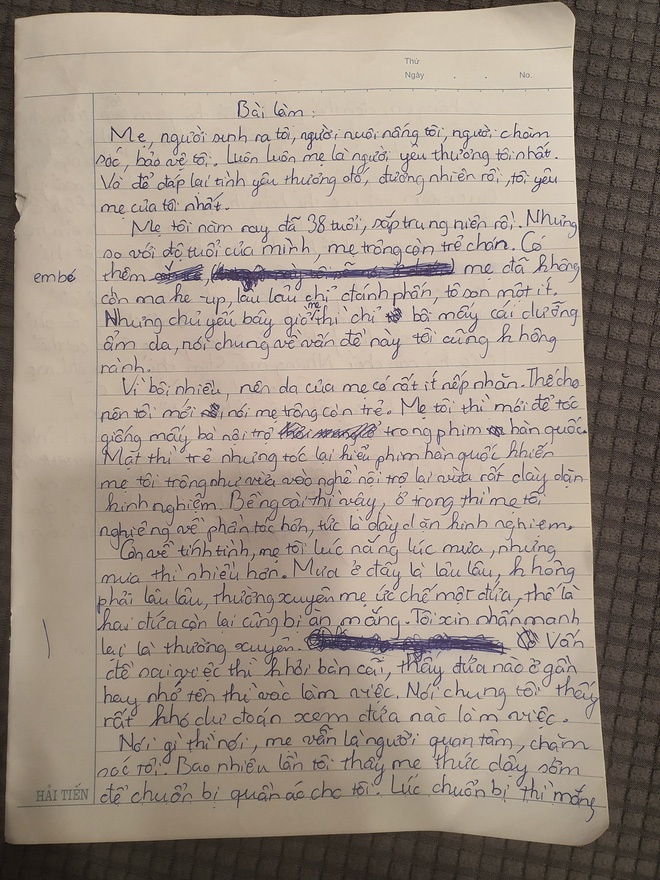 Thứ
Ngày . . No.
Bài làm:
Mẹ, người sinh ra tôi, người nuôi nấng tôi, người chăm
sóc, bảo vệ tôi. Luôn luôn mẹ là người yêu thương tôi nhất.
Và để đáp lại tình yêu thương đó, đương nhiên rồi, tôi yêu
mẹ của tôi nhất.
Mẹ tôi năm nay đã 38 tuổi, sắp trung niên rồi. Nhưng
so với độ tuổi của mình, mẹ trông còn trẻ chán. Có
em bé
thêm , mẹ đã không
còn make-up, lâu lâu chỉ đánh phấn, tô son một ít.
Nhưng chủ yếu bây giờ mẹ thì chỉ bôi mấy cái dưỡng
ẩm da, nói chung về vấn đề này tôi cũng không
rành.
Vì bôi nhiều, nên da của mẹ có rất ít nếp nhăn. Thế cho
nên tôi mới nói mẹ trông còn trẻ. Mẹ tôi thì mới để tóc
giống mấy bà nội trợ trong phim hàn quốc.
Mặt thì trẻ nhưng tóc lại kiểu phim hàn quốc khiến
mẹ tôi trông như vừa vào nghề nội trợ lại vừa rất dày dặn
kinh nghiệm. Bề ngoài thì vậy, ở trong thì mẹ tôi
nghiêng về phần tóc hơn, tức là dày dặn kinh nghiệm.
Còn về tính tình, mẹ tôi lúc nắng lúc mưa, nhưng
mưa thì nhiều hơn. Mưa ở đây là lâu lâu, không
phải lâu lâu, thường xuyên mẹ ức chế một đứa, thế là
hai đứa còn lại cũng bị ăn mắng. Tôi xin nhấn mạnh
lại là thường xuyên. Vấn
đề sai việc thì khỏi bàn cãi, thấy đứa nào ở gần
hay nhớ tên thì vác làm việc. Nói chung tôi thấy
rất khó dự đoán xem đứa nào làm việc.
Nói gì thì nói, mẹ vẫn là người quan tâm, chăm
sóc tôi. Bao nhiêu lần tôi thấy mẹ thức dậy sớm
để chuẩn bị quần áo cho tôi. Lúc chuẩn bị thì mắng
HẢI TIẾN